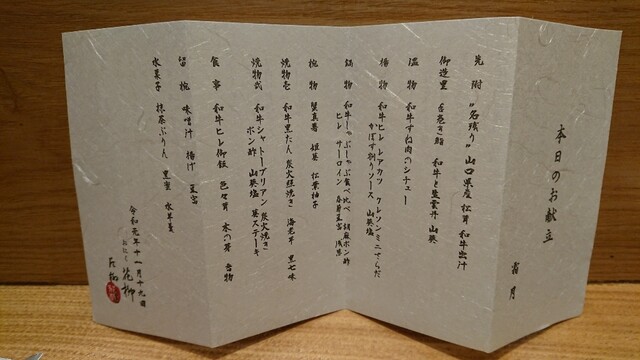 本日のお献立
霜月
先附 〝名残り〟 山口県産 松茸 和牛出汁
御造里 手巻き鮨 和牛と生雲丹 山葵
温物 和牛すね肉のシチュー
揚物 和牛ヒレ レアカツ クレソンミニサラダ
かぼす割りソース 山葵塩
鍋物 和牛しゃぶしゃぶ食べ比べ 胡麻ポン酢
ヒレ サーロイン
椀物 蟹真薯 松葉柚子
焼物壱 和牛黒たん 炭火焼き 海老芋 黒七味
焼物弐 和牛シャトーブリアン 炭火焼き
ポン酢 山葵塩 ステーキ
食事 和牛ヒレ御飯 色々茸 木の芽 香物
留椀 味噌汁 揚げ
水菓子 抹茶ぷりん 黒蜜
令和元年十一月十九日
おにく 花柳